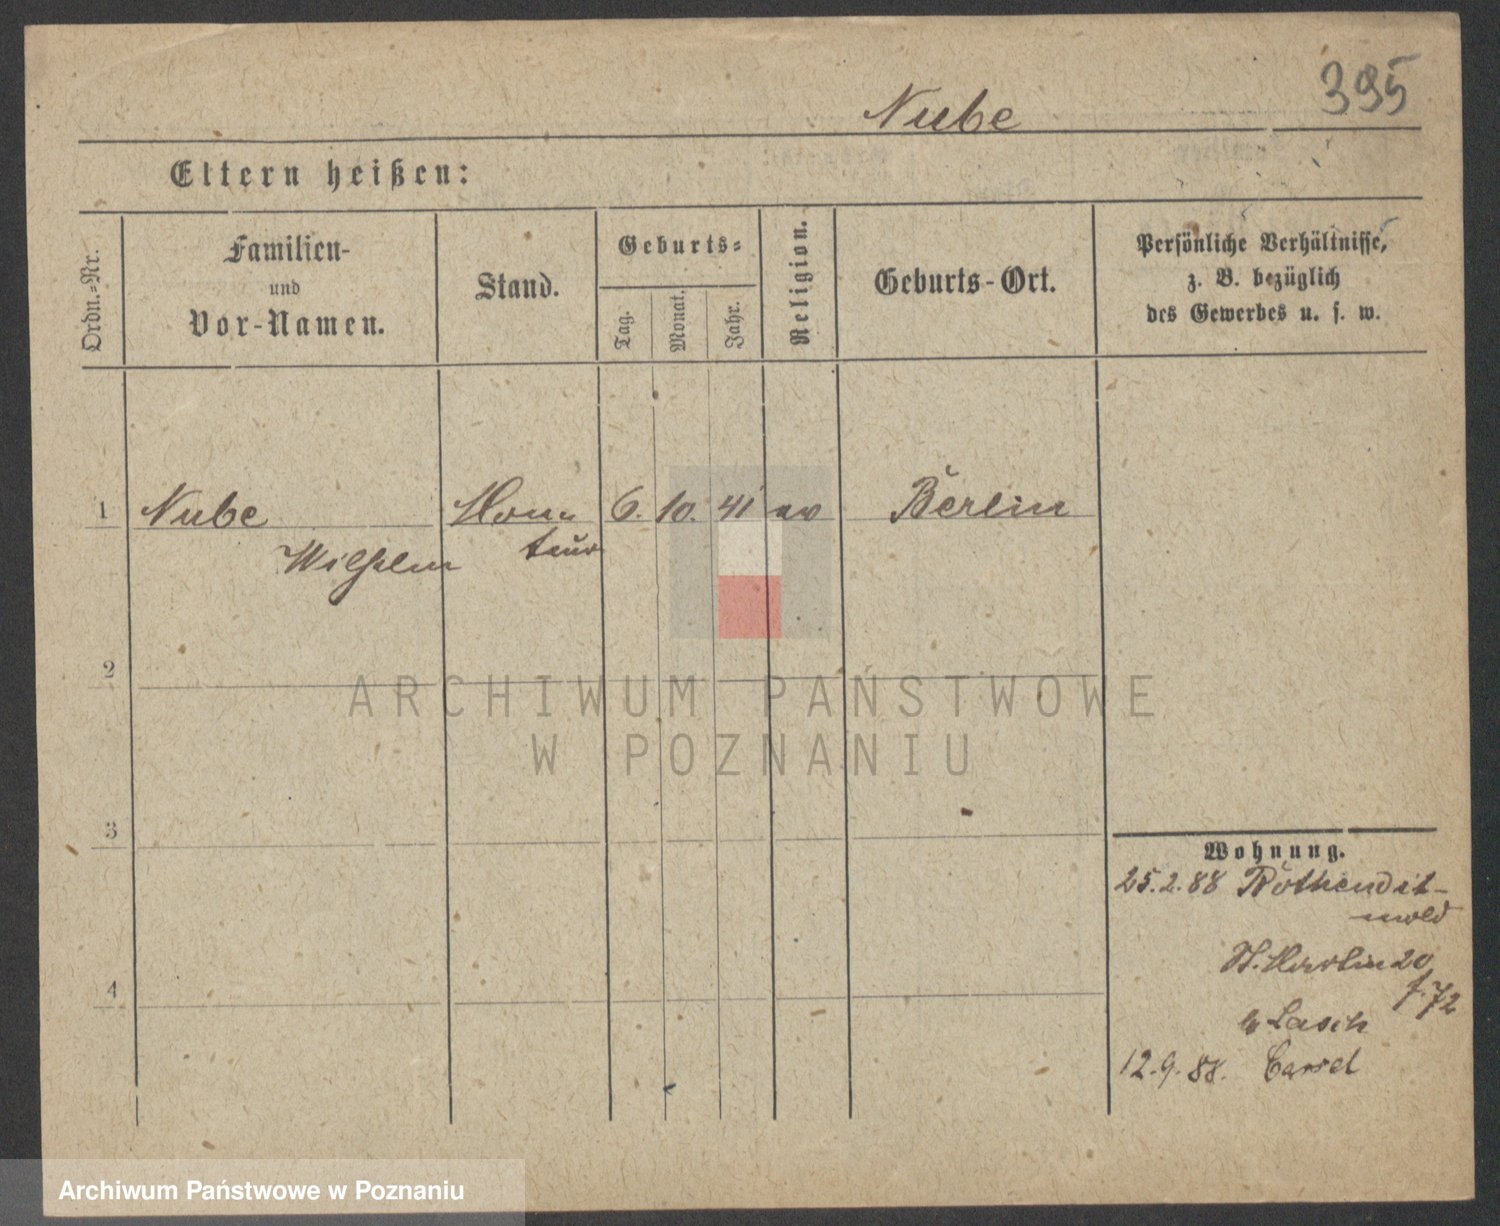 395
Nube
Eltern heißen:
Ordn.-Nr.
Familien-
und
Vor-Namen.
Stand.
Geburts-
Tag.
Monat.
Jahr.
Religion.
Geburts-Ort.
Persönliche Verhältnisse,
z. B. bezüglich
des Gewerbes u. s. w.
1 Nube Mon- 6. 10. 41 ev Berlin
Wilhelm teur
2
ARCHIWUM PAŃSTWOWE
W POZNANIU
3
Wohnung.
25.2.88 Rothendit-
mold
St. Martin 20
4
f. 72
b Lasch
12.9.88. Cassel
Archiwum Państwowe w Poznaniu